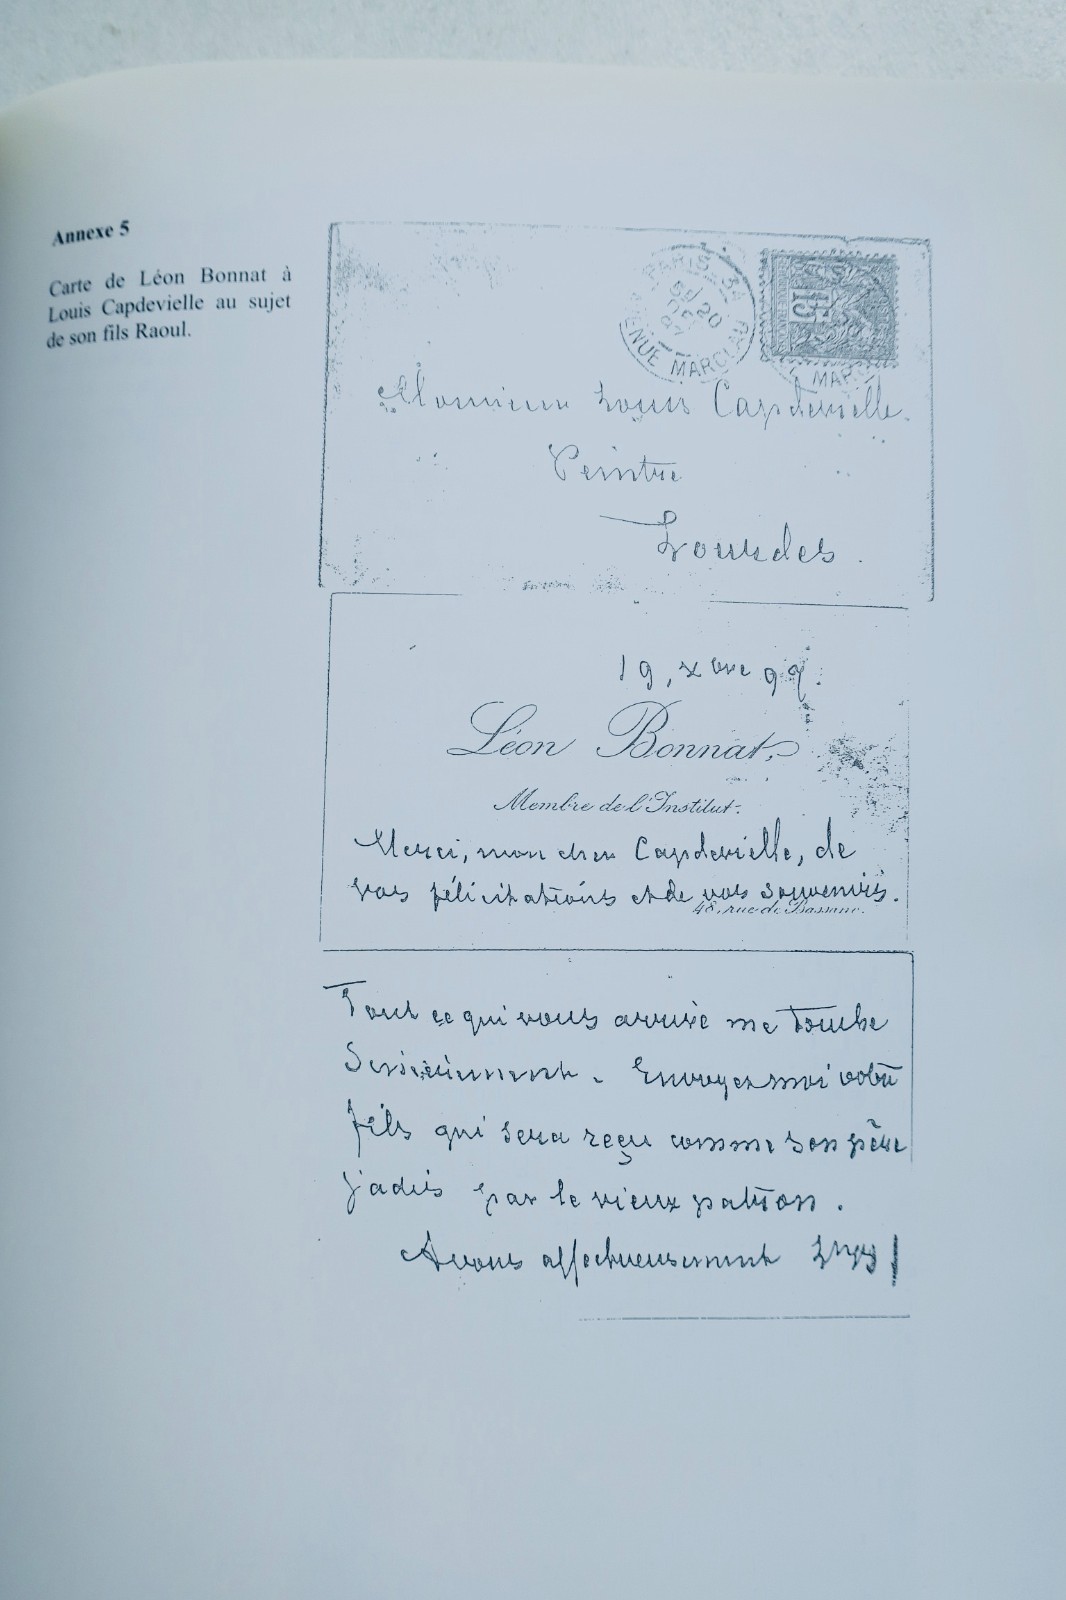 Annexe 5
Carte de Léon Bonnat à
Louis Capdevielle au sujet
de son fils Raoul.
PARIS. 34
20
AVENUE MARCEAU
15
MAR
Monsieur Louis Capdevielle.
Peintre
Lourdes.
19, Xbre 97.
Léon Bonnat,
Membre de l'Institut.
Merci, mon cher Capdevielle, de
vos félicitations et de vos souvenirs.
48, rue de Bassano.
Tout ce qui vous arrive me touche
Envoyez moi votre
fils qui sera reçu comme son père
jadis par le vieux patron.
A vous affectueusement